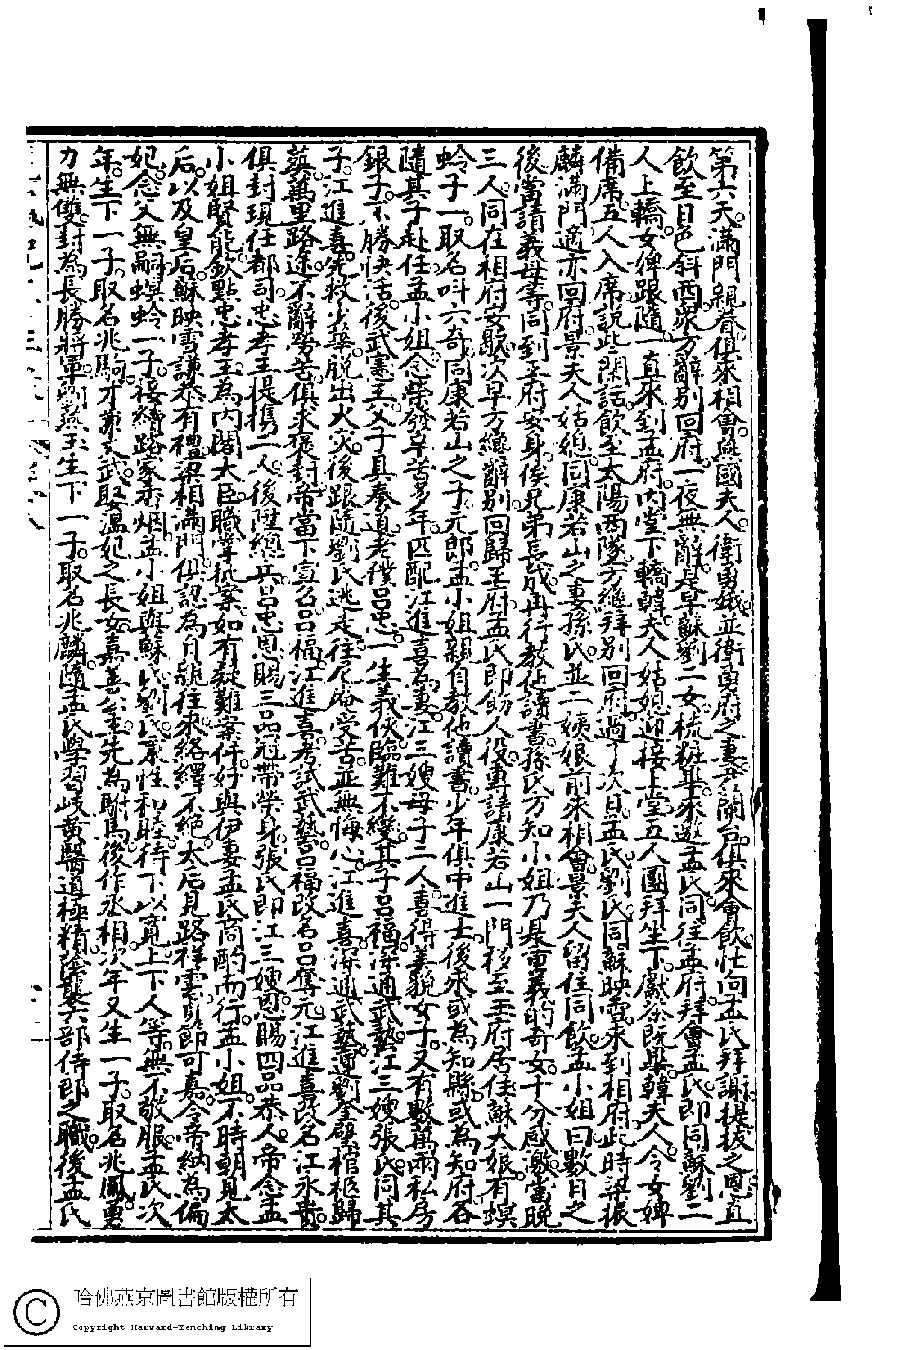 第六天滿門親眷俱來相會與國夫人衛勇娥並衛勇府之妻尹蘭台俱來會飲忙向孟氏拜謝提拔之恩直
飲至日色斜西衆方辭別回府一夜無辭是早蘇劉二女梳粧畢來邀孟氏同往孟府拜會孟氏即同蘇劉二
人上轎女婢跟隨一直來到孟府內堂下轎韓夫人姑媳迎接上堂五人團拜坐下獻茶既畢韓夫人令女婢
備席五人入席說些閑話飲至太陽西墜方纔拜別回府過了次日孟氏劉氏同蘇映雪來到相府此時梁振
麟滿門適亦回府景夫人姑媳同康若山之妻孫氏並二姨娘前來相會景夫人留住同飲孟小姐曰數日之
後當請義母等同到王府安身俟兄弟長成再行教他讀書孫氏方知小姐乃是重義的奇女十分感激當晚
三人同在相府安歇次早方纔辭別回歸王府孟氏即飭人役專請康若山一門移至王府居住蘇大娘有螟
蛉子一取名叫六奇同康若山之子元郎孟小姐親自教他讀書少年俱中進士後來或為知縣或為知府各
隨其子赴任孟小姐念榮發辛苦多年匹配江進喜為妻江三嫂母子二人喜得美貌女子又有數萬兩私房
銀子不勝快活後武憲王父子具奏道老僕呂忠一生義俠臨難不變其子呂福深通武藝江三嫂張氏同其
子江進喜先救少華脫出火災後跟隨劉氏逃走往尼庵受苦並無悔心江進喜深通武藝運劉奎璧棺柩歸
葬萬里路途不辭勞苦俱求褒封帝當下宣召呂福江進喜考試武藝呂福改名呂奪元江進喜改名江永貴
俱封現任都司忠孝王提携二人後陞總兵呂忠恩賜三品冠帶榮身張氏即江三嫂恩賜四品恭人帝念孟
小姐賢能欽點忠孝王為內閣大臣職掌抵案如有疑難案件好與伊妻孟氏商酌而行孟小姐不時朝見太
后以及皇后蘇映雪謙恭有禮梁相滿門俱認為自親往來絡繹不絶太后見路祥雲有節可嘉令帝納為偏
妃念父無嗣螟蛉一子接續路家香烟孟小姐與蘇氏劉氏秉性和睦待下以寬上下人等無不敬服孟氏次
年生下一子取名兆駒才兼文武娶溫妃之長女嘉善公主先為駙馬後作丞相次年又生一子取名兆鳳勇
力無雙封為長勝將軍劉燕玉生下一子取名兆麟隨孟氏學習岐黃醫道極精陰襲六部侍郎之職後孟氏
哈佛燕京圖書館版權所有
Copyright Harvard-Yenching Library